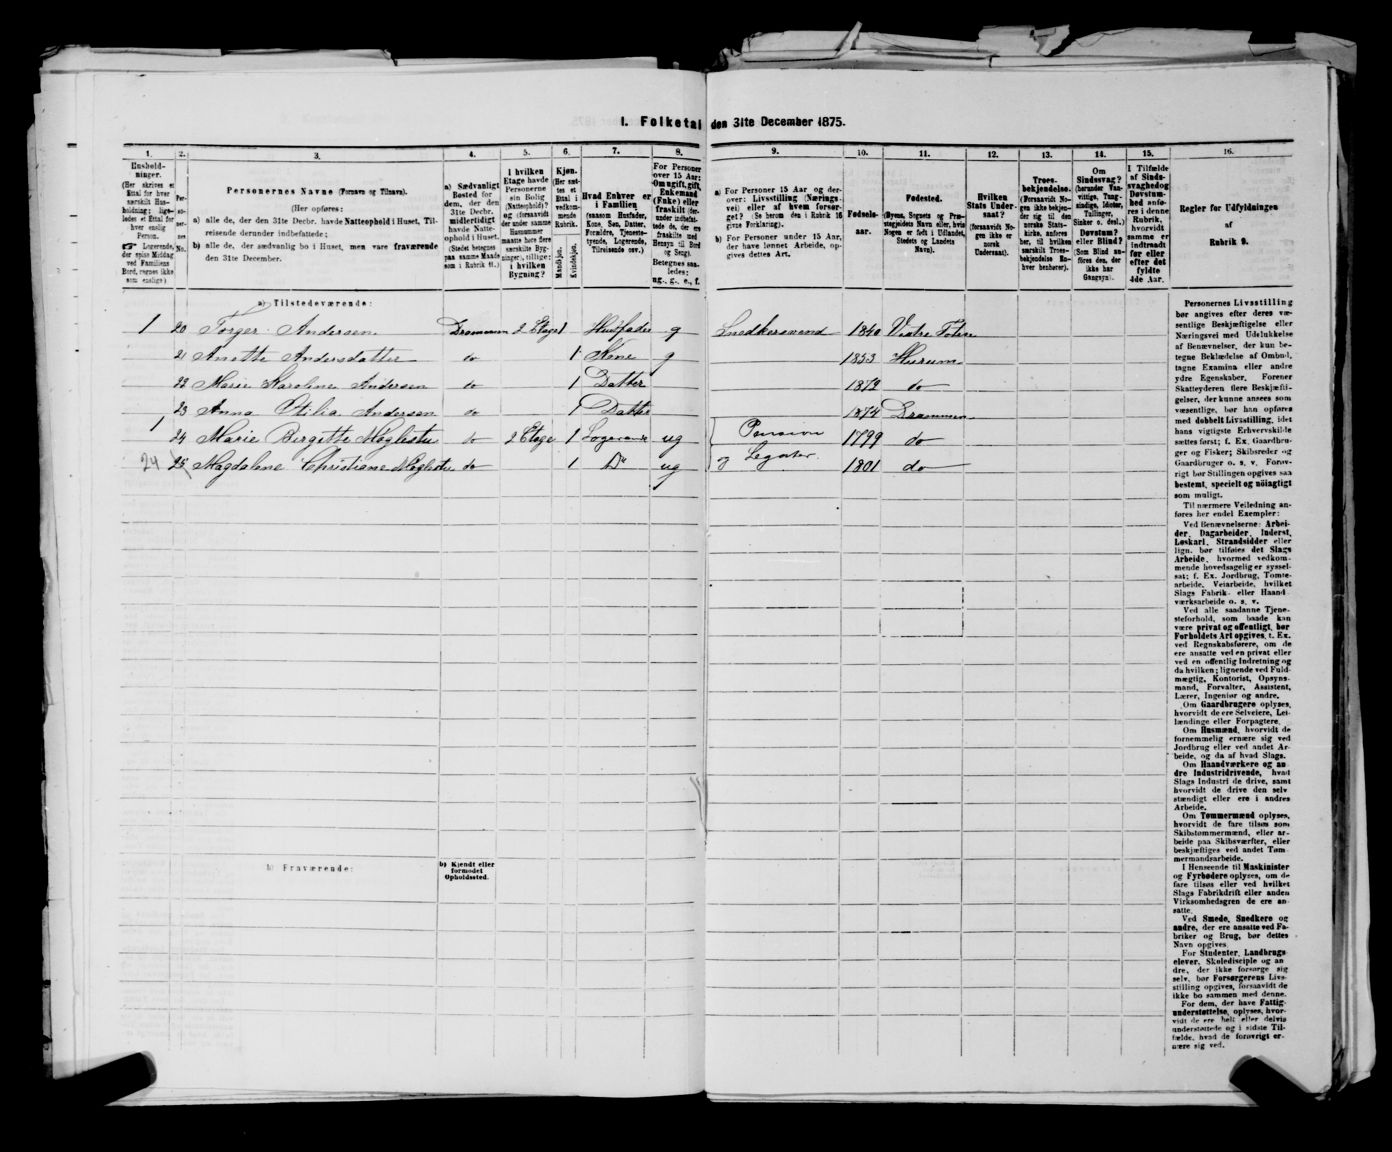 I. Folketal den 31te December 1875.
1. 2. 3. 4. 5. 6. 7. 8. 9. 10. 11. 12. 13. 14. 15. 16.
Hushold-
ninger.
(Her skrives et
Ettal for hver
særskilt Hus-
holdning; lige-
ledes et Ettal for
hver enslig
Person.
☞ Logerende,
der spise Middag
ved Familiens
Bord, regnes ikke
som enslige.)
Per-
so-
ner-
nes
No.
Personernes Navne (Fornavn og Tilnavn).
(Her opføres:
a) alle de, der den 31te Decbr. havde Natteophold i Huset, Til-
reisende derunder indbefattede;
b) alle de, der sædvanlig bo i Huset, men vare fraværende
den 31te December.
a) Sædvanligt
Bosted for
dem, der den
31te Decbr.
midlertidigt
havde Natte-
ophold i Huset.
(Stedet betegnes
paa samme Maade
som i Rubrik 11.)
I hvilken
Etage havde
Personerne
sin Bolig
(Natteophold)?
og (forsaavidt
der under samme
Husnummer
maatte høre flere
særskilte Byg-
ninger), tillige:
i hvilken
Bygning?
Kjøn.
(Her sæt-
tes et
Ettal i
vedkom-
mende
Rubrik.
Mandkjøn.
Kvindekjøn.
Hvad Enhver er
i Familien
(saasom Husfader,
Kone, Søn, Datter,
Forældre, Tjeneste-
tyende, Logerende,
Tilreisende osv.).
For Personer
over 15 Aar:
Om ugift, gift,
Enkemand
(Enke) eller
fraskilt (der-
under indbefat-
tede de, der ere
fraskilte med
Hensyn til Bord
og Seng).
Betegnes saa-
ledes:
ug., g., e., f.
a) For Personer 15 Aar og der-
over: Livsstilling (Nærings-
vei) eller af hvem forsør-
get? (Se herom den i Rubrik 16
givne Forklaring).
b) For Personer under 15 Aar,
der have lønnet Arbeide, op-
gives dettes Art.
Fødsels-
aar.
Fødested.
(Byens, Sognets og Præ-
stegjeldets Navn eller, hvis
Nogen er født i Udlandet,
Stedets og Landets
Navn).
Hvilken
Stats Under-
saat?
(forsaavidt No-
gen ikke er
norsk
Undersaat).
Troes-
bekjendelse.
(Forsaavidt No-
gen ikke bekjen-
der sig til den
norske Stats-
kirke, anføres
her, til hvilken
særskilt Troes-
bekjendelse En-
hver henhører).
Om
Sindssvag?
(herunder Van-
vittige, Tung-
sindige, Idioter,
Tullinger,
Sinker o. desl.)
Døvstum?
eller Blind?
(Som Blind an-
føres den, der
ikke har
Gangsyn).
I Tilfælde
af Sinds-
svaghed og
Døvstum-
hed anfø-
res i denne
Rubrik,
hvorvidt
samme er
indtraadt
før eller
efter det
fyldte
4de Aar.
Regler for Udfyldningen
af
Rubrik 9.
a) Tilstedeværende:
1 20 Torger Andersen Drammen 2 Etage 1 Husfader g Snedkersvend 1840 Vestre Toten
21 Anette Andersdatter do 1 Kone g 1853 Hurum
22 Marie Karoline Andersen do 1 Datter 1872 do
23 Anna Otilia Andersen do 1 Datter 1874 Drammen
1 24 Marie Birgitte Møglestu do 2 Etage 1 Logerende ug Pension 1799 do
24 25 Magdalene Christiane Møglestu do 1 Do ug og Legater 1801 do
b) Fraværende:
b) Kjendt eller
formodet
Opholdssted.
Personernes Livsstilling
bør angives efter deres væ-
sentlige Beskjæftigelse eller
Næringsvei med Udelukkelse
af Benævnelser, der kun be-
tegne Beklædelse af Ombud,
tagne Examina eller andre
ydre Egenskaber. Forener
Skatteyderen flere Beskjæfti-
gelser, der kunne ansees som
væsentlige, bør han opføres
med dobbelt Livsstilling, idet
hans vigtigste Erhvervskilde
sættes først; f. Ex. Gaardbru-
ger og Fisker; Skibsreder og
Gaardbruger o. s. v. Forøv-
rigt bør Stillingen opgives saa
bestemt, specielt og nøiagtigt
som muligt.
Til nærmere Veiledning an-
føres her endel Exempler:
Ved Benævnelserne: Arbei-
der, Dagarbeider, Inderst,
Løskarl, Strandsidder eller
lign. bør tilføies det Slags
Arbeide, hvormed vedkom-
mende hovedsagelig er syssel-
sat; f. Ex. Jordbrug, Tomte-
arbeide, Veiarbeide, hvilket
Slags Fabrik- eller Haand-
værksarbeide o. s. v.
Ved alle saadanne Tjene-
steforhold, som baade kan
være privat og offentligt, bør
Forholdets Art opgives, t. Ex.
ved Regnskabsførere, om de
ere ansatte ved en privat eller
ved en offentlig Indretning og
da hvilken; lignende ved Fuld-
mægtig, Kontorist, Opsyns-
mand, Forvalter, Assistent,
Lærer, Ingeniør og andre.
Om Gaardbrugere oplyses,
hvorvidt de ere Selveiere, Lei-
lændinge eller Forpagtere.
Om Husmænd, hvorvidt de
fornemmelig ernære sig ved
Jordbrug eller ved andet Ar-
beide, og da af hvad Slags.
Om Haandværkere og an-
dre Industridrivende, hvad
Slags Industri de drive, samt
hvorvidt de drive den selv-
stændigt eller ere i andres
Arbeide.
Om Tømmermænd oplyses,
hvorvidt de fare tilsøs som
Skibstømmermænd, eller ar-
beide paa Skibsværfter, eller
beskjæftiges ved andet Tøm-
mermandsarbeide.
I Henseende til Maskinister
og Fyrbødere oplyses, om de
fare tilsøs eller ved hvilket
Slags Fabrikdrift eller anden
Virksomhedsgren de ere an-
satte.
Ved Smede, Snedkere og
andre, der ere ansatte ved Fa-
briker og Brug, bør dettes
Navn opgives.
For Studenter, Landbrugs-
elever, Skoledisciple og an-
dre, der ikke forsørge sig
selv, bør Forsørgerens Livs-
stilling opgives, forsaavidt de
ikke bo sammen med denne.
For dem, der have Fattig-
understøttelse, oplyses, hvor-
vidt de ere helt eller delvis
understøttede og i sidste Til-
fælde, hvad de forøvrigt er-
nære sig ved.